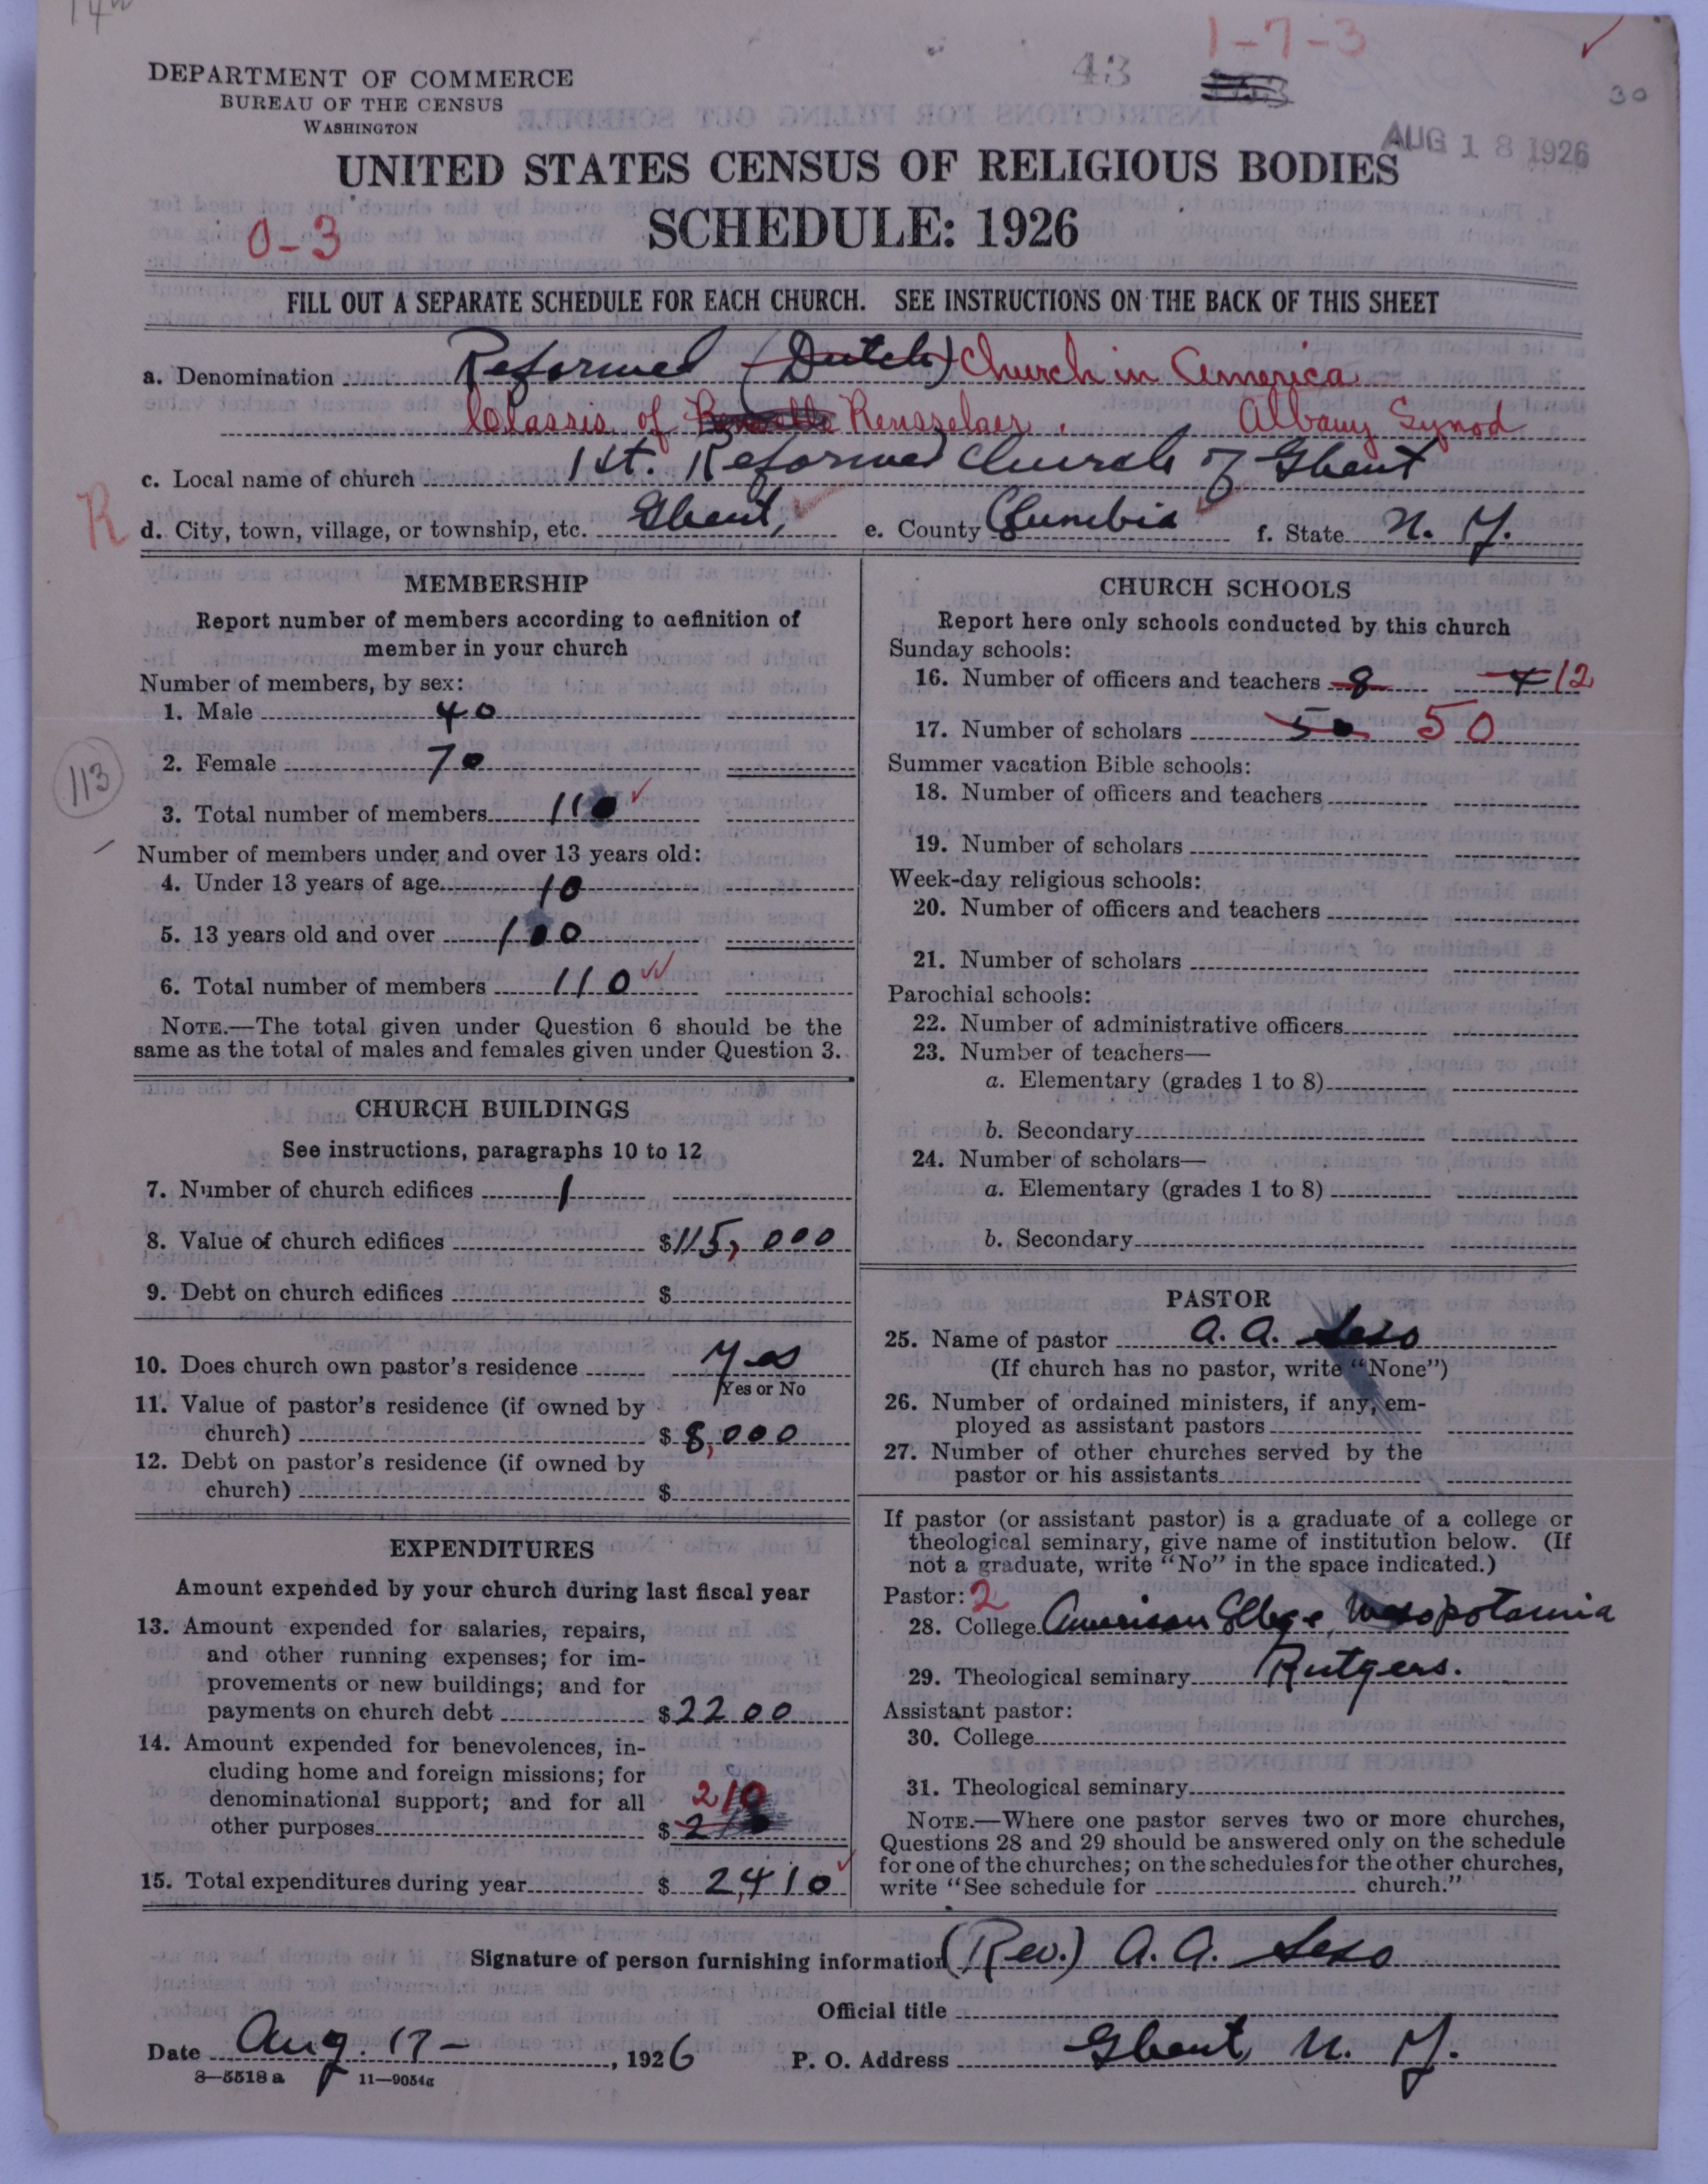 43
1-7-3
30
DEPARTMENT OF COMMERCE
BUREAU OF THE CENSUS
WASHINGTON
AUG 18 1926
UNITED STATES CENSUS OF RELIGIOUS BODIES
SCHEDULE: 1926
0-3
FILL OUT A SEPARATE SCHEDULE FOR EACH CHURCH. SEE INSTRUCTIONS ON THE BACK OF THIS SHEET
a. Denomination Reformed (Dutch) Church in America
Classis of Rensselaer. Albany Synod
c. Local name of church 1st. Reformed Church of Ghent
R
d. City, town, village, or township, etc. Ghent, e. County Columbia f. State N. Y.
MEMBERSHIP
Report number of members according to definition of
member in your church
Number of members, by sex:
1. Male 40
2. Female 70
113
3. Total number of members 110
Number of members under and over 13 years old:
4. Under 13 years of age 10
5. 13 years old and over 100
6. Total number of members 110
NOTE.—The total given under Question 6 should be the
same as the total of males and females given under Question 3.
CHURCH BUILDINGS
See instructions, paragraphs 10 to 12
7. Number of church edifices 1
8. Value of church edifices $115,000
9. Debt on church edifices $
10. Does church own pastor's residence Yes
Yes or No
11. Value of pastor's residence (if owned by
church) $ 8,000
12. Debt on pastor's residence (if owned by
church) $
EXPENDITURES
Amount expended by your church during last fiscal year
13. Amount expended for salaries, repairs,
and other running expenses; for im-
provements or new buildings; and for
payments on church debt $2200
14. Amount expended for benevolences, in-
cluding home and foreign missions; for
denominational support; and for all 210
other purposes $
15. Total expenditures during year $ 2,410
CHURCH SCHOOLS
Report here only schools conducted by this church
Sunday schools:
16. Number of officers and teachers 8 4 12
17. Number of scholars 50 50
Summer vacation Bible schools:
18. Number of officers and teachers
19. Number of scholars
Week-day religious schools:
20. Number of officers and teachers
21. Number of scholars
Parochial schools:
22. Number of administrative officers
23. Number of teachers—
a. Elementary (grades 1 to 8)
b. Secondary
24. Number of scholars—
a. Elementary (grades 1 to 8)
b. Secondary
PASTOR
25. Name of pastor A. A. Seso
(If church has no pastor, write "None")
26. Number of ordained ministers, if any, em-
ployed as assistant pastors
27. Number of other churches served by the
pastor or his assistants
If pastor (or assistant pastor) is a graduate of a college or
theological seminary, give name of institution below. (If
not a graduate, write "No" in the space indicated.)
Pastor: 2
28. College American College, Mesopotamia
29. Theological seminary Rutgers.
Assistant pastor:
30. College
31. Theological seminary
NOTE.—Where one pastor serves two or more churches,
Questions 28 and 29 should be answered only on the schedule
for one of the churches; on the schedules for the other churches,
write "See schedule for church."
Signature of person furnishing information (Rev.) A. A. Seso
Official title
Date Aug. 17 - , 1926 P. O. Address Ghent N. Y.
8—5518 a 11—9054a